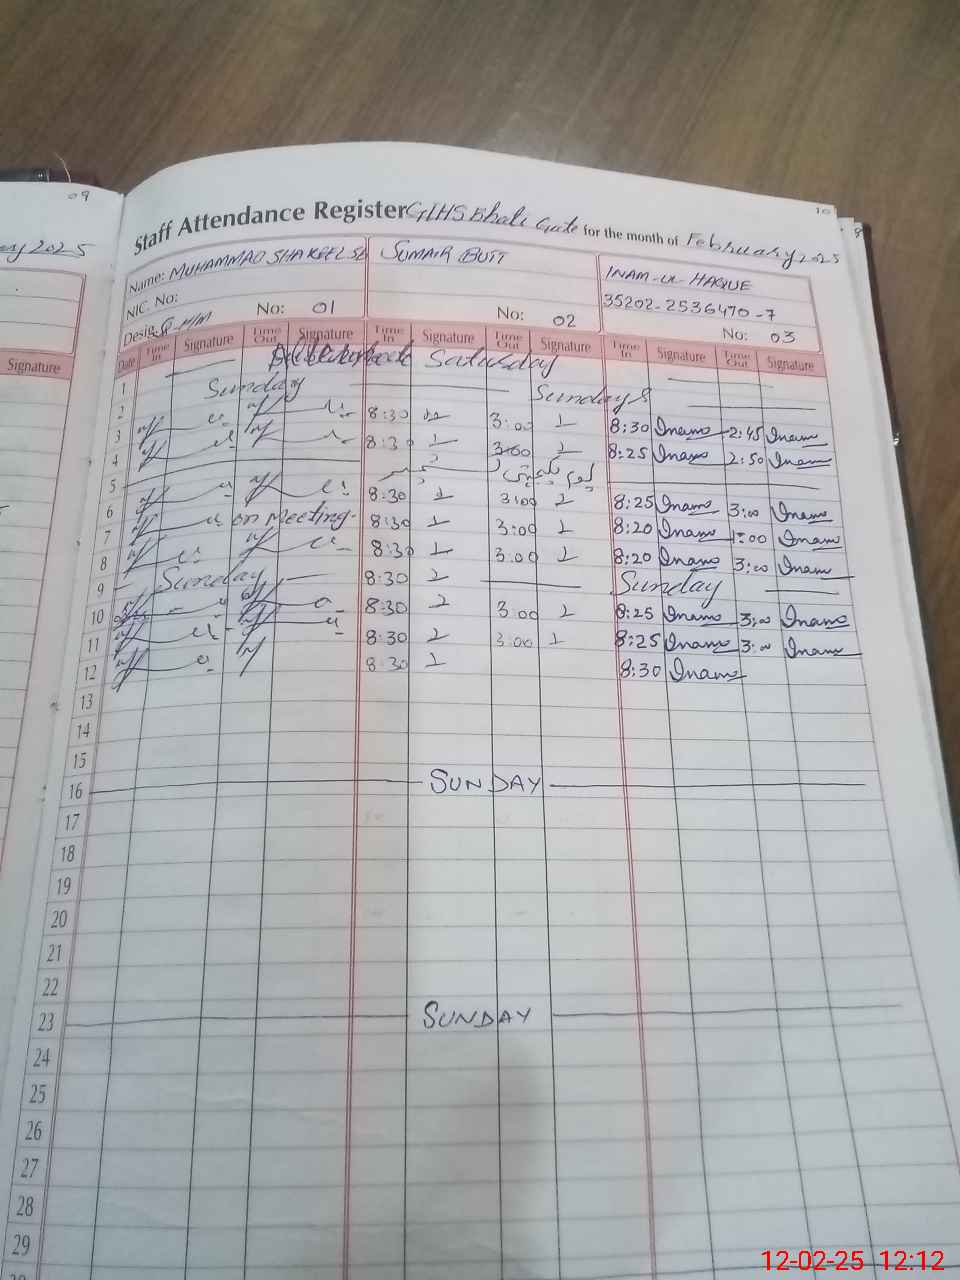 09
10
Staff Attendance Register GHHS Bhati Gate for the month of February 2025
2025
Name: MUHAMMAD SHAKEEL SUMAIR BUTT INAM-UL-HAQUE
NIC. No: 35202-2536470-7
Desig. No: 01 No: 02 No: 03
Signature Date Time In Signature Time Out Signature Time In Signature Time Out Signature Time In Signature Time Out Signature
1 Saturday
2 Sunday Sunday
3 8:30 3:00 8:30 Inam 2:45 Inam
4 8:30 3:00 8:25 Inam 2:50 Inam
5 یوم یکجہتی کشمیر
6 8:30 3:00 8:25 Inam 3:00 Inam
7 on Meeting 8:30 3:00 8:20 Inam 1:00 Inam
8 8:30 3:00 8:20 Inam 3:00 Inam
9 Sunday 8:30 Sunday
10 8:30 3:00 8:25 Inam 3:00 Inam
11 8:30 3:00 8:25 Inam 3:00 Inam
12 8:30 8:30 Inam
13
14
15
16 SUNDAY
17
18
19
20
21
22
23 SUNDAY
24
25
26
27
28
29
12-02-25 12:12